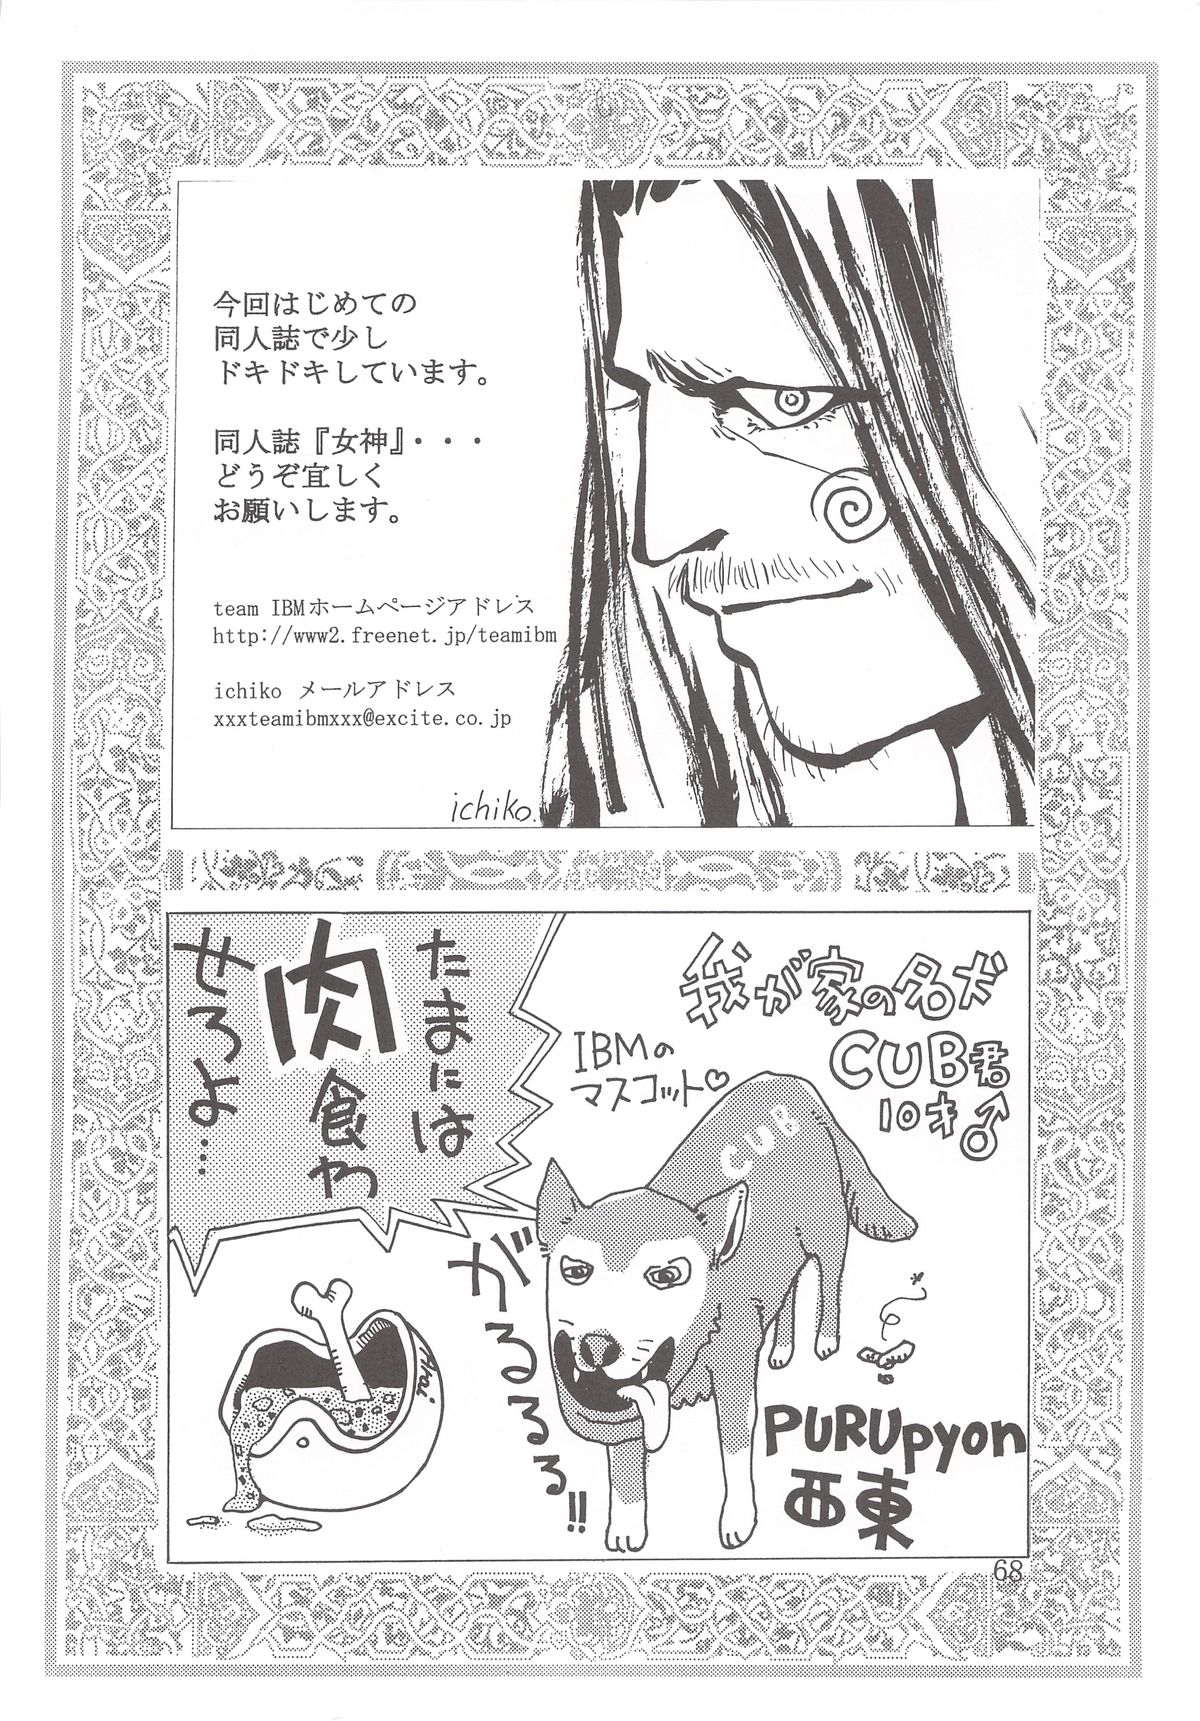 今回はじめての
同人誌で少し
ドキドキしています。
同人誌『女神』・・・
どうぞ宜しく
お願いします。
team IBMホームページアドレス
http://www2.freenet.jp/teamibm
ichiko メールアドレス
xxxteamibmxxx@excite.co.jp
ichiko.
我が家の名犬
CUB君
10才♂
IBMの
マスコット♡
たまには
肉食わ
せろよ…
CUB
がるるるる!!
Akai
PURUpyon
西東
68